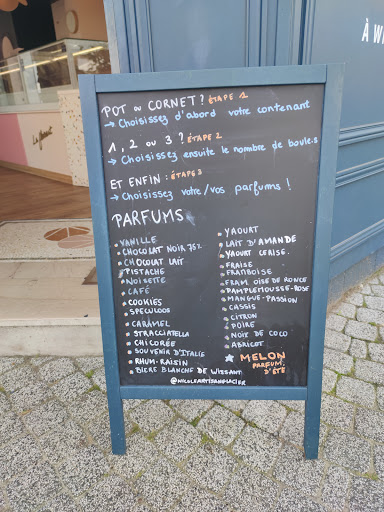 À W
POT OU CORNET ? ÉTAPE 1
→ Choisissez d'abord votre contenant
1, 2 OU 3 ? ÉTAPE 2
→ Choisissez ensuite le nombre de boules
ET ENFIN : ÉTAPE 3
→ Choisissez votre/vos parfums !
PARFUMS
• VANILLE
• CHOCOLAT NOIR 75%
• CHOCOLAT LAIT
• PISTACHE
• NOISETTE
• CAFÉ
• COOKIES
• SPECULOOS
• CARAMEL
• STRACCIATELLA
• CHICORÉE
• SOUVENIR D'ITALIE
• RHUM-RAISIN
• BIERE BLANCHE DE WISSANT
• YAOURT
• LAIT D'AMANDE
• YAOURT CERISE.
• FRAISE
• FRAMBOISE
• FRAM. OISE DE RONCE
• PAMPLEMOUSSE-ROSE
• MANGUE-PASSION
• CASSIS
• CITRON
• POIRE
• NOIX DE COCO
• ABRICOT
★ MELON
PARFUM
D'ÉTÉ
@NICOLEARTISANGLACIER